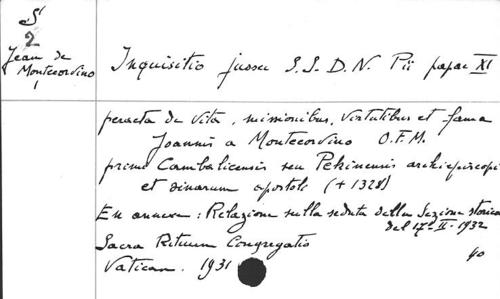 S
2
Jean de
Montecorvino
1
Inquisitio jussu S.S.D.N. Pii papae XI
peracta de vita, missionibus, virtutibus et fama
Joannis a Montecorvino O.F.M.
primi Cambalicensis seu Pekinensis archiepiscopi
et sinarum apostoli (+ 1328)
En annexe : Relazione sulla seduta della Sezione storica
del 17-II-1932
Sacra Rituum Congregatio
Vatican. 1931
40